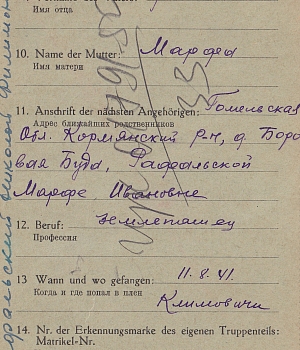 Имя отца
10. Name der Mutter: Марфа
Имя матери
11. Anschrift der nächsten Angehörigen: Гомельская
Адрес ближайших родственников
Обл. Кормянский р-н, д. Боро
вая Буда,
Марфе Ивановне
12. Beruf: землепашец
Профессия
13 Wann und wo gefangen: 11.8.41.
Когда и где попал в плен
Климовичи
14. Nr. der Erkennungsmarke des eigenen Truppenteils:
Matrikel-Nr.